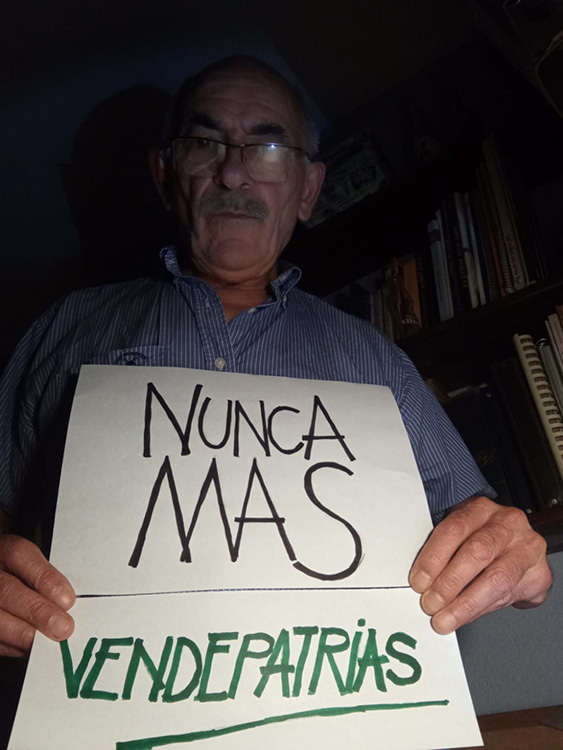 NUNCA
MAS
VENDEPATRiAS